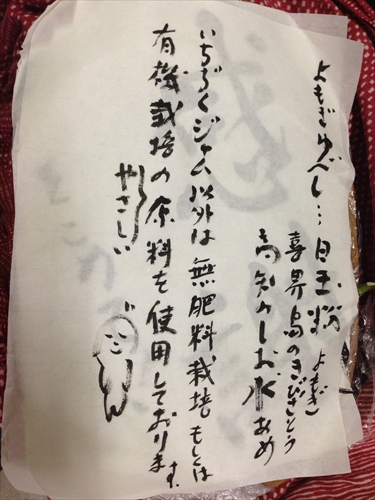 よもぎゆべし…白玉粉 よもぎ
喜界島のきびざとう
高知のしお 水あめ
いちぢくジャム以外は無肥料栽培もしくは
有機栽培の原料を使用しております。
やさしい